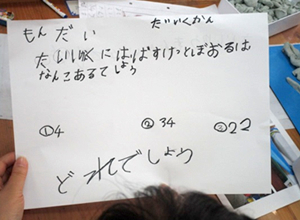 もんだい
たいいくかん
たいいくにはばすけっとぼおるは
なんこあるでしょう
①4
②34
③22
どれでしょう